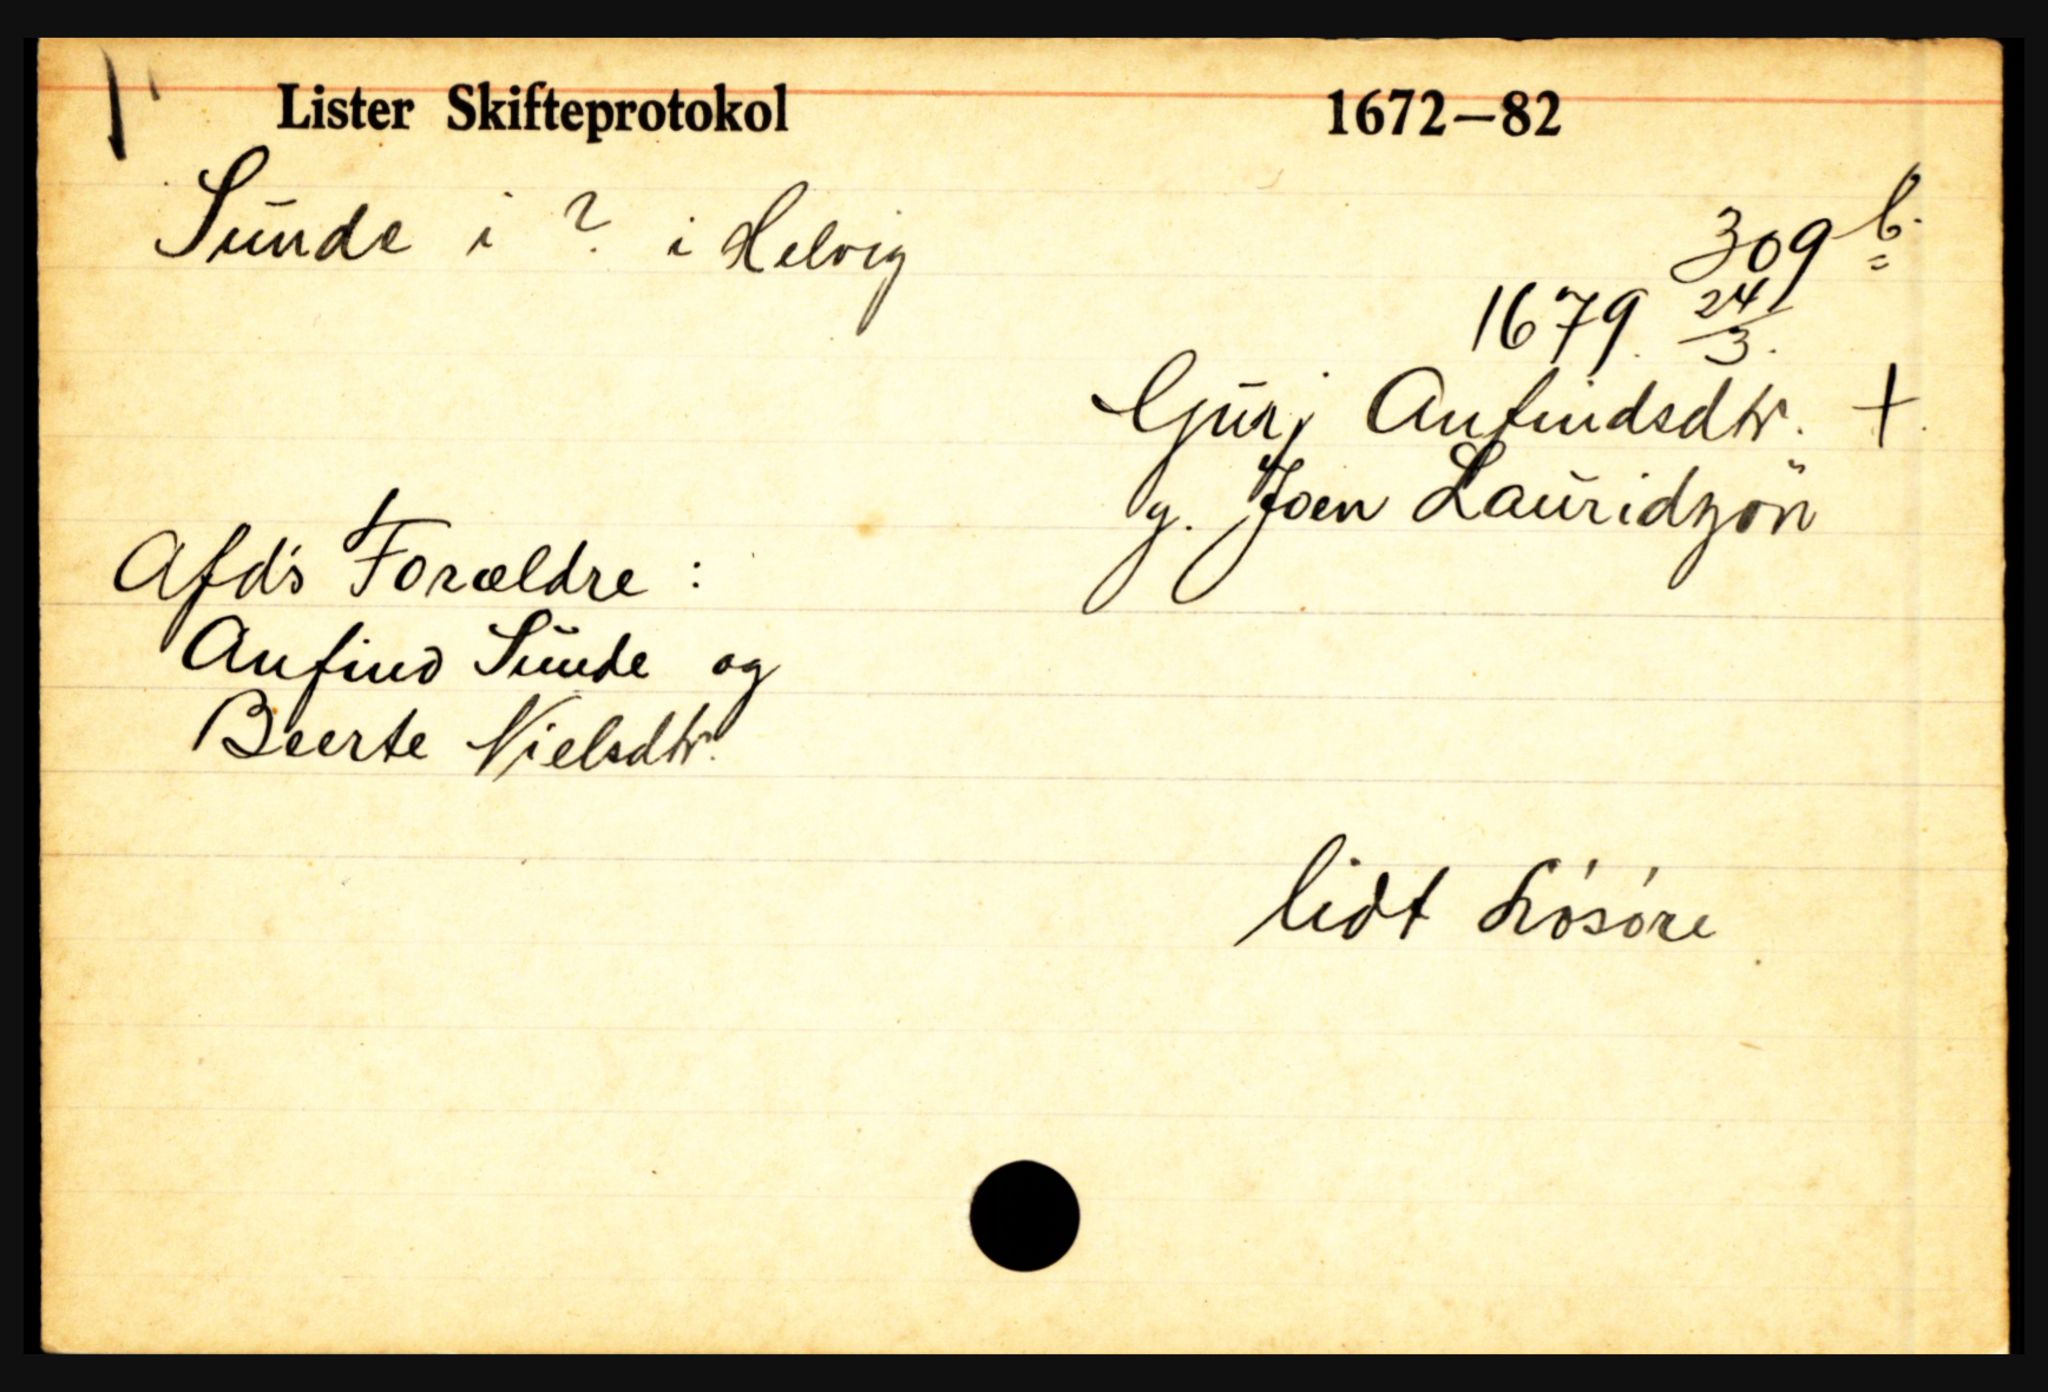 Lister Skifteprotokol 1672—82
Sunde i ? i Helvig
309 b.
1679. 24/3.
Gurj Anfindsdtr. +
g. Joen Lauridzön
Afd's Forældre :
Anfind Sunde og
Beerte Nielsdtr.
lidt Lósóre